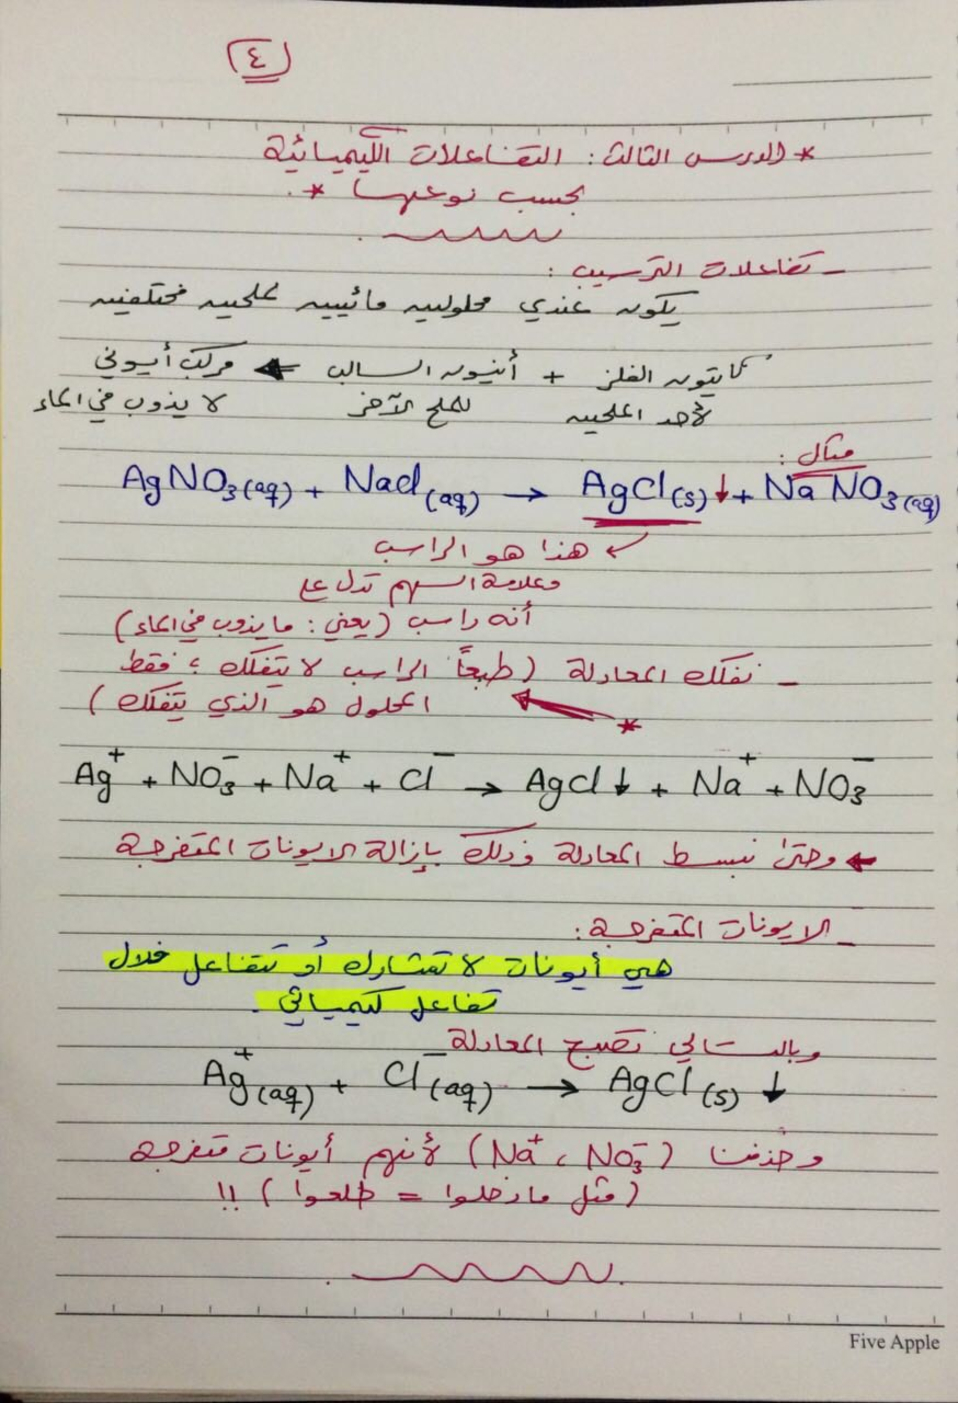 ٤
* الدرس الثالث: التفاعلات الكيميائية
بحسب نوعها *
- تفاعلات الترسيب :
يكون عندي محلولين مائيين لملحين مختلفين
كاتيون الفلز + أنيون السالب ← مركب أيوني
لأحد الملحين للملح الآخر لا يذوب في الماء
مثال :
AgNO₃(aq) + NaCl(aq) → AgCl(s)↓ + NaNO₃(aq)
↙ هذا هو الراسب
وعلامة السهم تدل على
أنه راسب (يعني : ما يذوب في الماء)
- نفكك المعادلة (طبعاً الراسب لا يتفكك ؛ فقط
المحلول هو الذي يتفكك) *
Ag⁺ + NO₃⁻ + Na⁺ + Cl⁻ → AgCl↓ + Na⁺ + NO₃⁻
← وحتى نبسط المعادلة وذلك بإزالة الايونات المتفرجة
- الايونات المتفرجة :
هي أيونات لا تتشارك أو تتفاعل خلال
تفاعل كيميائي .
وبالتالي تصبح المعادلة
Ag⁺(aq) + Cl⁻(aq) → AgCl(s) ↓
وحذفنا (Na⁺ ، NO₃⁻) لأنهم أيونات متفرجة
(مثل ما دخلوا = طلعوا) !!
Five Apple